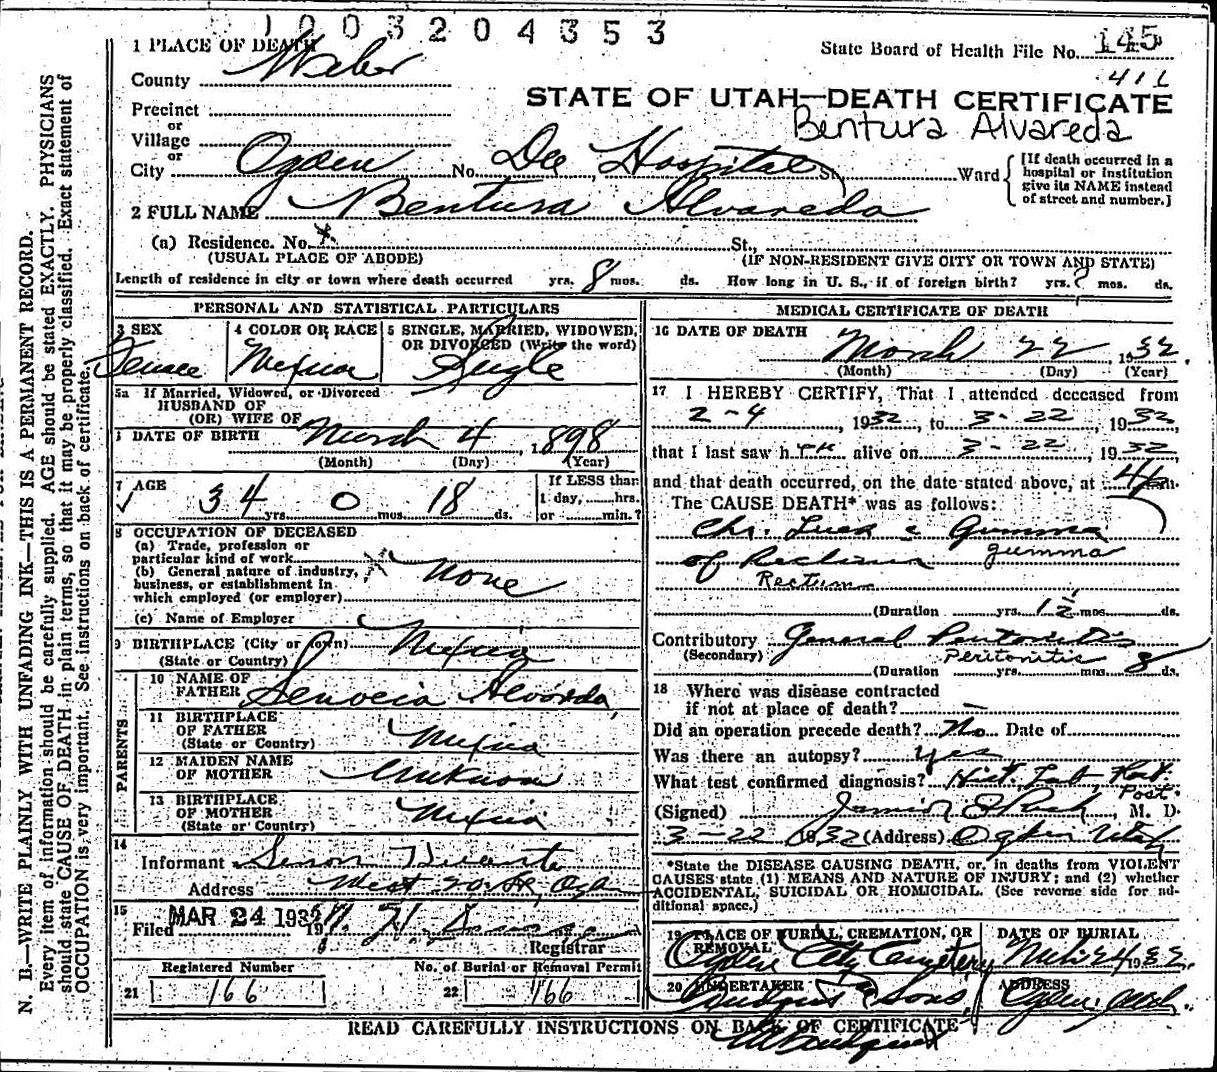 1003204353
1 PLACE OF DEATH
State Board of Health File No. 145
411
County Weber
STATE OF UTAH—DEATH CERTIFICATE
Precinct
or
Village
Bentura Alvareda
or
City Ogden No. Dee Hospital St. Ward
[If death occurred in a
hospital or institution
give its NAME instead
of street and number.]
2 FULL NAME Bentura Alvareda
(a) Residence. No. St.,
(USUAL PLACE OF ABODE) (IF NON-RESIDENT GIVE CITY OR TOWN AND STATE)
Length of residence in city or town where death occurred yrs. 8 mos. ds. How long in U. S., if of foreign birth? yrs. ? mos. ds.
PERSONAL AND STATISTICAL PARTICULARS
3 SEX
4 COLOR OR RACE
5 SINGLE, MARRIED, WIDOWED,
OR DIVORCED (Write the word)
Female Mexican Single
5a If Married, Widowed, or Divorced
HUSBAND OF
(OR) WIFE OF
6 DATE OF BIRTH March 4, 1898
(Month) (Day) (Year)
7 AGE
34 yrs. 0 mos. 18 ds.
If LESS than
1 day, hrs.
or min.?
8 OCCUPATION OF DECEASED
(a) Trade, profession or
particular kind of work
(b) General nature of industry,
business, or establishment in
which employed (or employer)
none
(c) Name of Employer
9 BIRTHPLACE (City or town) Mexico
(State or Country)
PARENTS
10 NAME OF
FATHER Alvareda
11 BIRTHPLACE
OF FATHER
(State or Country) Mexico
12 MAIDEN NAME
OF MOTHER Unknown
13 BIRTHPLACE
OF MOTHER
(State or Country) Mexico
14
Informant Duarte
Address West
15
Filed MAR 24 1932
Registrar
Registered Number No. of Burial or Removal Permit
21 166 22 166
MEDICAL CERTIFICATE OF DEATH
16 DATE OF DEATH
March 22, 1932.
(Month) (Day) (Year)
17 I HEREBY CERTIFY, That I attended deceased from
2-4, 1932, to 3-22, 1932,
that I last saw her alive on 3-22, 1932
and that death occurred, on the date stated above, at 4 m.
The CAUSE DEATH* was as follows:
Chr. Lues c Gumma
gumma
of Rectum
Rectum
(Duration yrs. 1½ mos. ds.
Contributory General Peritonitis
(Secondary) Peritonitis
(Duration yrs. mos. 8 ds.
18 Where was disease contracted
if not at place of death? —
Did an operation precede death? No Date of
Was there an autopsy? yes
What test confirmed diagnosis? Hist. Lab.
Post.
(Signed) M. D.
3-22 1932 (Address) Ogden Utah
*State the DISEASE CAUSING DEATH, or, in deaths from VIOLENT
CAUSES state (1) MEANS AND NATURE OF INJURY; and (2) whether
ACCIDENTAL, SUICIDAL OR HOMICIDAL. (See reverse side for ad-
ditional space.)
19 PLACE OF BURIAL, CREMATION, OR
REMOVAL
DATE OF BURIAL
Ogden City Cemetery 24 1932.
20 UNDERTAKER ADDRESS
& Sons Ogden, Utah.
READ CAREFULLY INSTRUCTIONS ON BACK OF CERTIFICATE
N. B.—WRITE PLAINLY WITH UNFADING INK—THIS IS A PERMANENT RECORD.
Every item of information should be carefully supplied. AGE should be stated EXACTLY. PHYSICIANS
should state CAUSE OF DEATH in plain terms, so that it may be properly classified. Exact statement of
OCCUPATION is very important. See instructions on back of certificate.